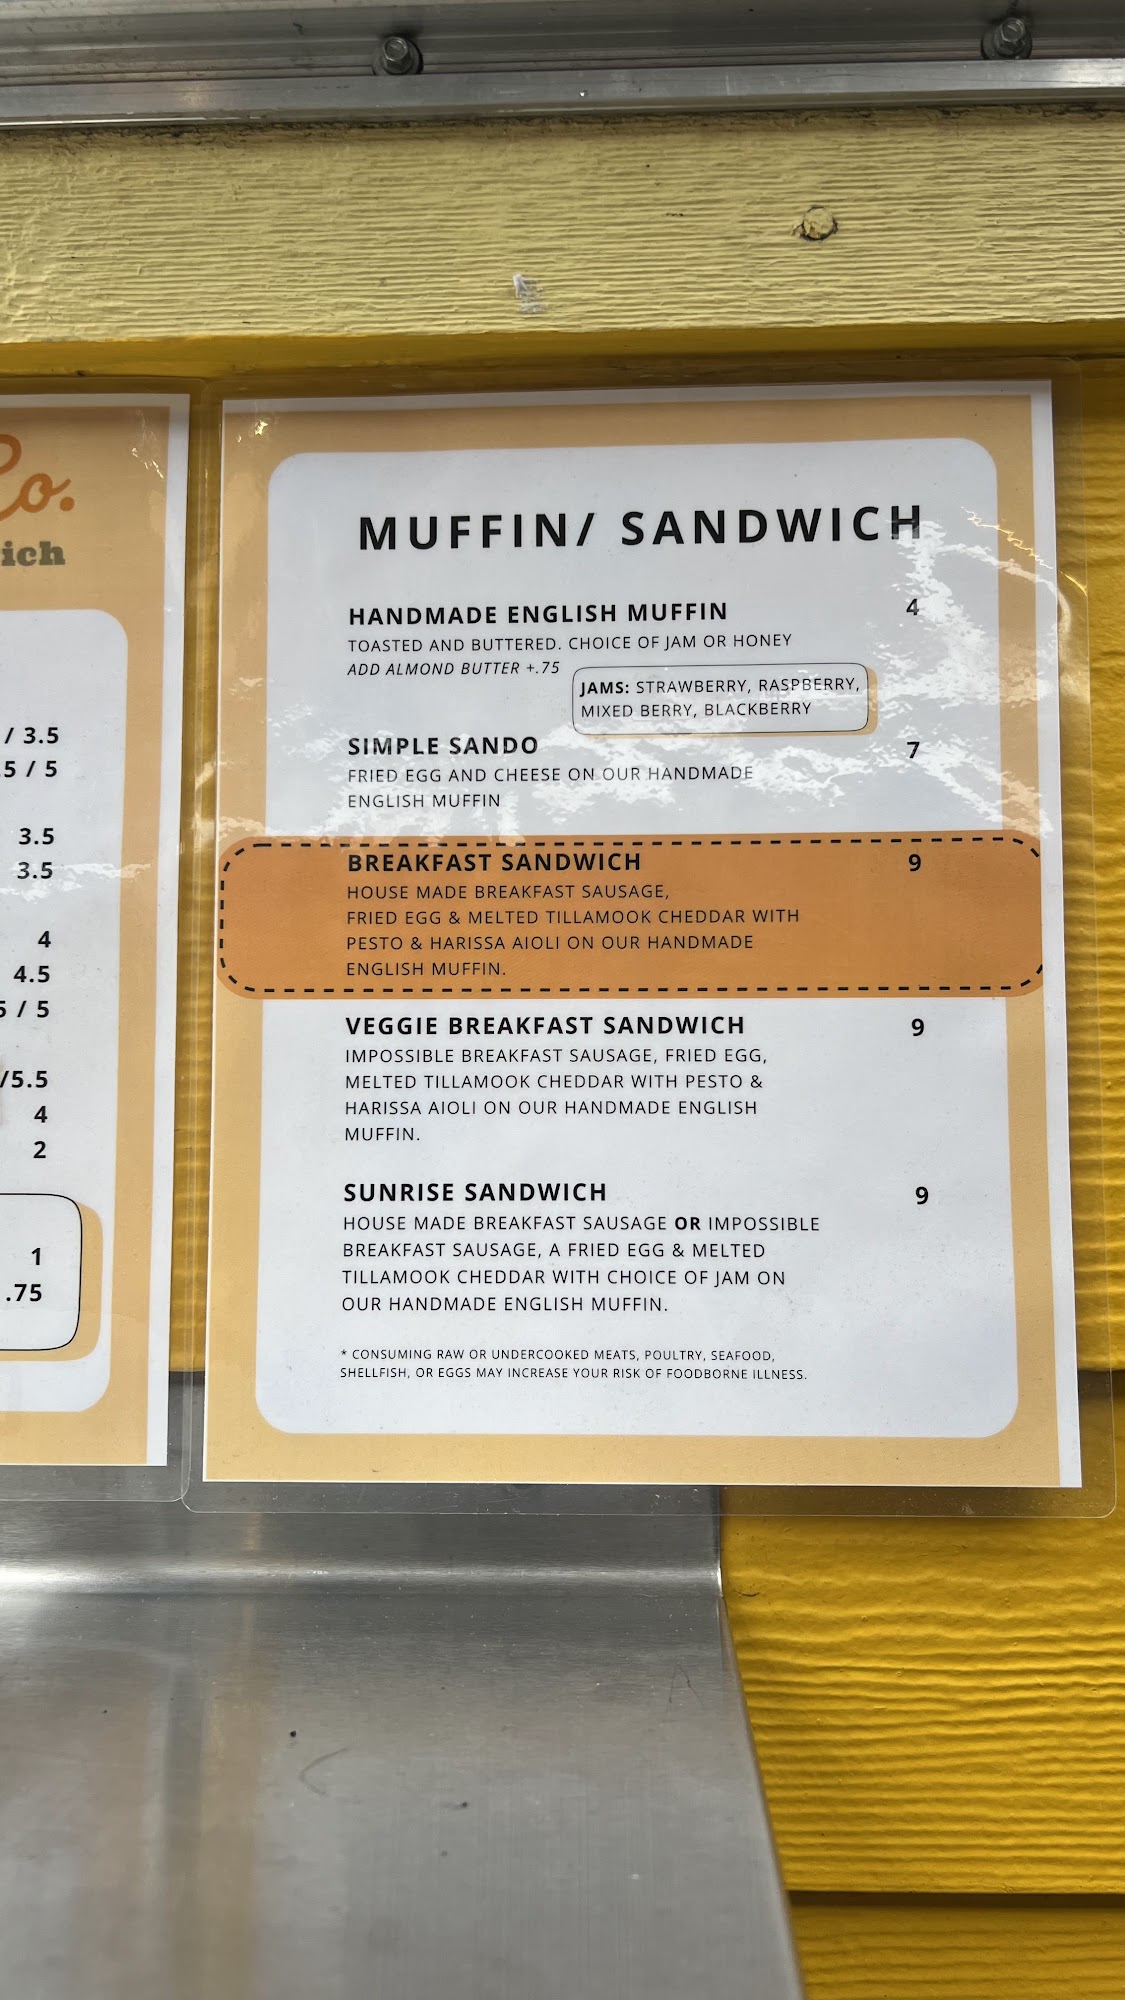 Co.
ich
/ 3.5
5 / 5
3.5
3.5
4
4.5
5 / 5
/5.5
4
2
1
.75
MUFFIN/ SANDWICH
HANDMADE ENGLISH MUFFIN 4
TOASTED AND BUTTERED. CHOICE OF JAM OR HONEY
ADD ALMOND BUTTER +.75
JAMS: STRAWBERRY, RASPBERRY,
MIXED BERRY, BLACKBERRY
SIMPLE SANDO 7
FRIED EGG AND CHEESE ON OUR HANDMADE
ENGLISH MUFFIN
BREAKFAST SANDWICH 9
HOUSE MADE BREAKFAST SAUSAGE,
FRIED EGG & MELTED TILLAMOOK CHEDDAR WITH
PESTO & HARISSA AIOLI ON OUR HANDMADE
ENGLISH MUFFIN.
VEGGIE BREAKFAST SANDWICH 9
IMPOSSIBLE BREAKFAST SAUSAGE, FRIED EGG,
MELTED TILLAMOOK CHEDDAR WITH PESTO &
HARISSA AIOLI ON OUR HANDMADE ENGLISH
MUFFIN.
SUNRISE SANDWICH 9
HOUSE MADE BREAKFAST SAUSAGE OR IMPOSSIBLE
BREAKFAST SAUSAGE, A FRIED EGG & MELTED
TILLAMOOK CHEDDAR WITH CHOICE OF JAM ON
OUR HANDMADE ENGLISH MUFFIN.
* CONSUMING RAW OR UNDERCOOKED MEATS, POULTRY, SEAFOOD,
SHELLFISH, OR EGGS MAY INCREASE YOUR RISK OF FOODBORNE ILLNESS.